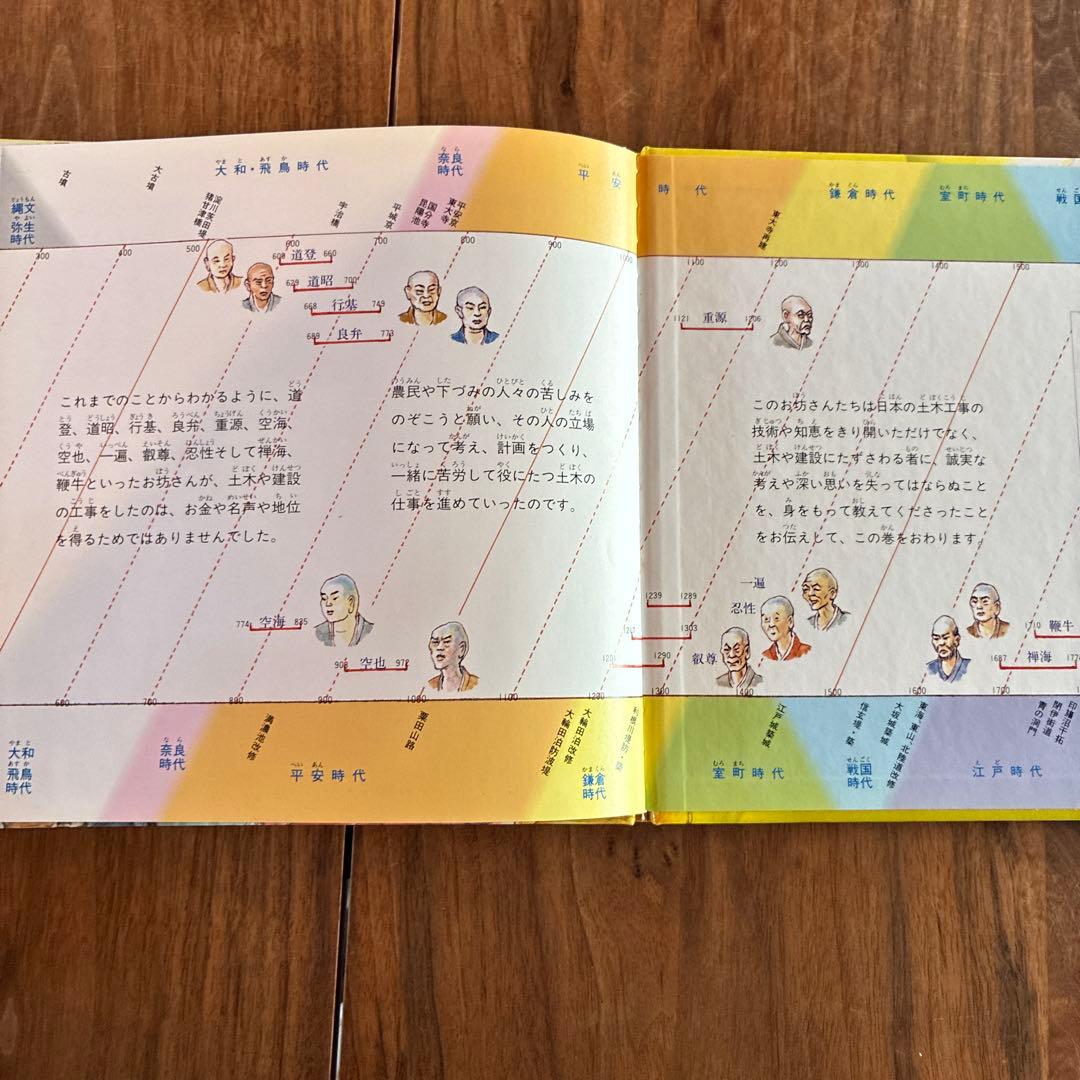 縄文
弥生
時代
古墳
大古墳
大和・飛鳥時代
奈良
時代
平安
時代
鎌倉時代
室町時代
戦国
淀川茨田堤
猪甘津橋
宇治橋
平城京
国分寺
昆陽池
平安京
東大寺
東大寺再建
300
400
500
600
700
800
900
1000
1100
1200
1300
1400
1500
道登 660
629 道昭 700
668 行基 749
689 良弁 773
1121 重源 1206
これまでのことからわかるように、道
登、道昭、行基、良弁、重源、空海、
空也、一遍、叡尊、忍性そして禅海、
鞭牛といったお坊さんが、土木や建設
の工事をしたのは、お金や名声や地位
を得るためではありませんでした。
農民や下づみの人々の苦しみを
のぞこうと願い、その人の立場
になって考え、計画をつくり、
一緒に苦労して役にたつ土木の
仕事を進めていったのです。
このお坊さんたちは日本の土木工事の
技術や知恵をきり開いただけでなく、
土木や建設にたずさわる者に、誠実な
考えや深い思いを失ってはならぬこと
を、身をもって教えてくださったこと
をお伝えして、この巻をおわります。
774 空海 835
空也 972
1239 1289
一遍
1303
忍性
1201 1290
叡尊
1710 鞭牛
1687 禅海
600
700
800
900
1000
1100
1200
1300
1400
1500
1600
1700
大和
飛鳥
時代
奈良
時代
満濃池改修
平安時代
粟田山路
大輪田泊改修
大輪田泊防波堤
鎌倉
時代
室町時代
江戸城築城
信玄堤・築
大坂城築城
戦国
時代
東海、東山、北陸道改修
江戸時代
印旛沼干拓
閉伊街道
青の洞門